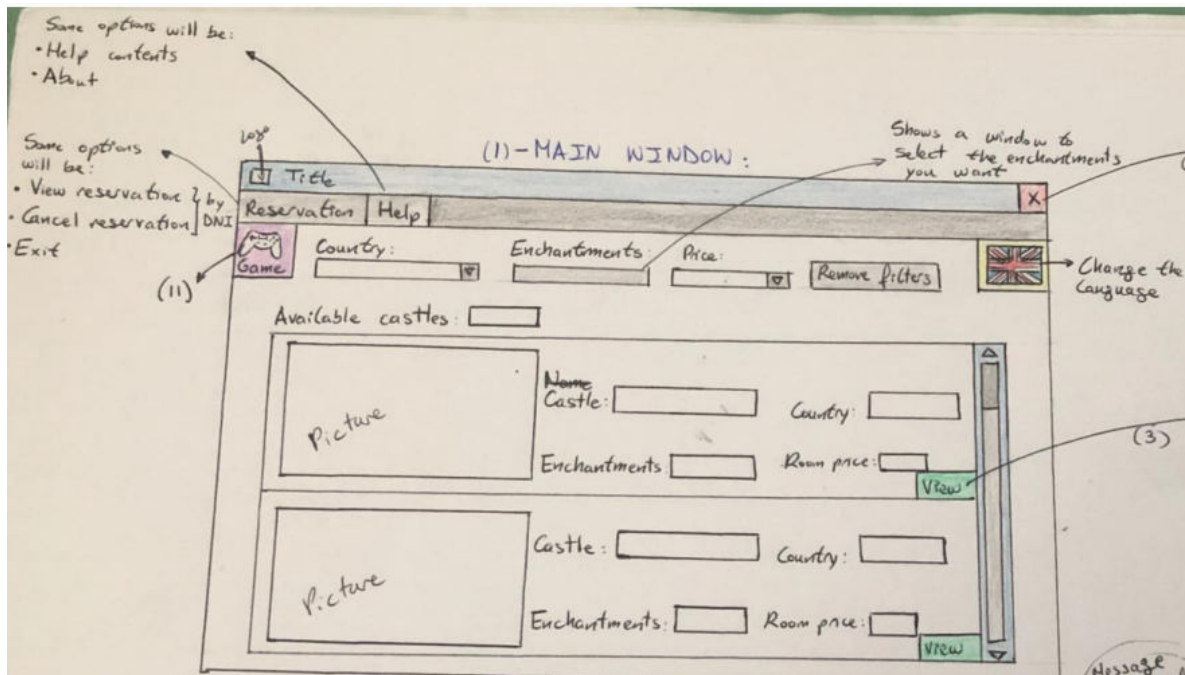 Some options will be:
• Help contents
• About
Some options
will be:
• View reservation } by
• Cancel reservation DNI
• Exit
Logo
(1)-MAIN WINDOW:
Shows a window to
select the enchantments
you want
Title
X
Reservation Help
Game
Country:
Enchantments:
Price:
Remove filters
Change the
language
(11)
Available castles:
Picture
Name
Castle:
Country:
Enchantments:
Room price:
View
(3)
Picture
Castle:
Country:
Enchantments:
Room price:
View
Message